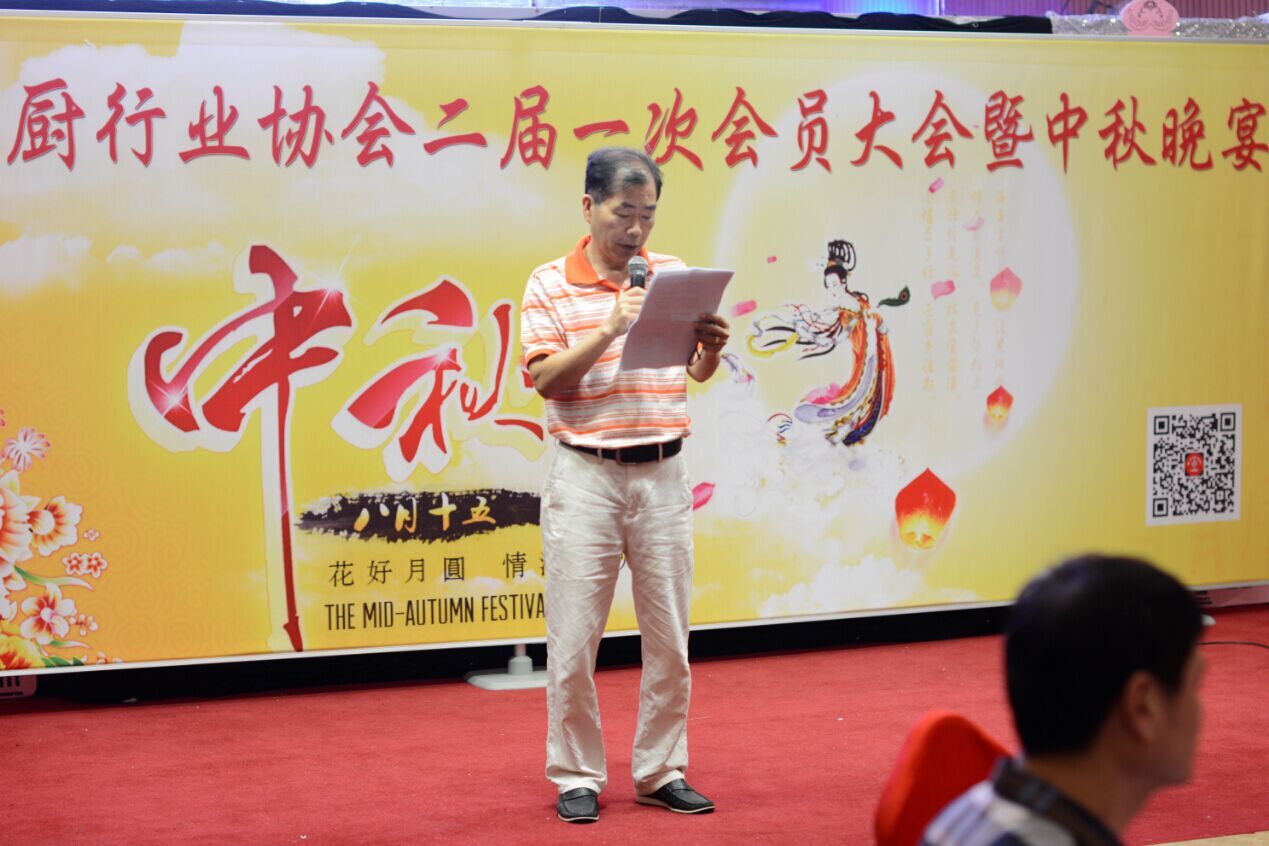 厨行业协会二届一次会员大会暨中秋晚宴
中秋
八月十五
花好月圓 情
THE MID-AUTUMN FESTIVA